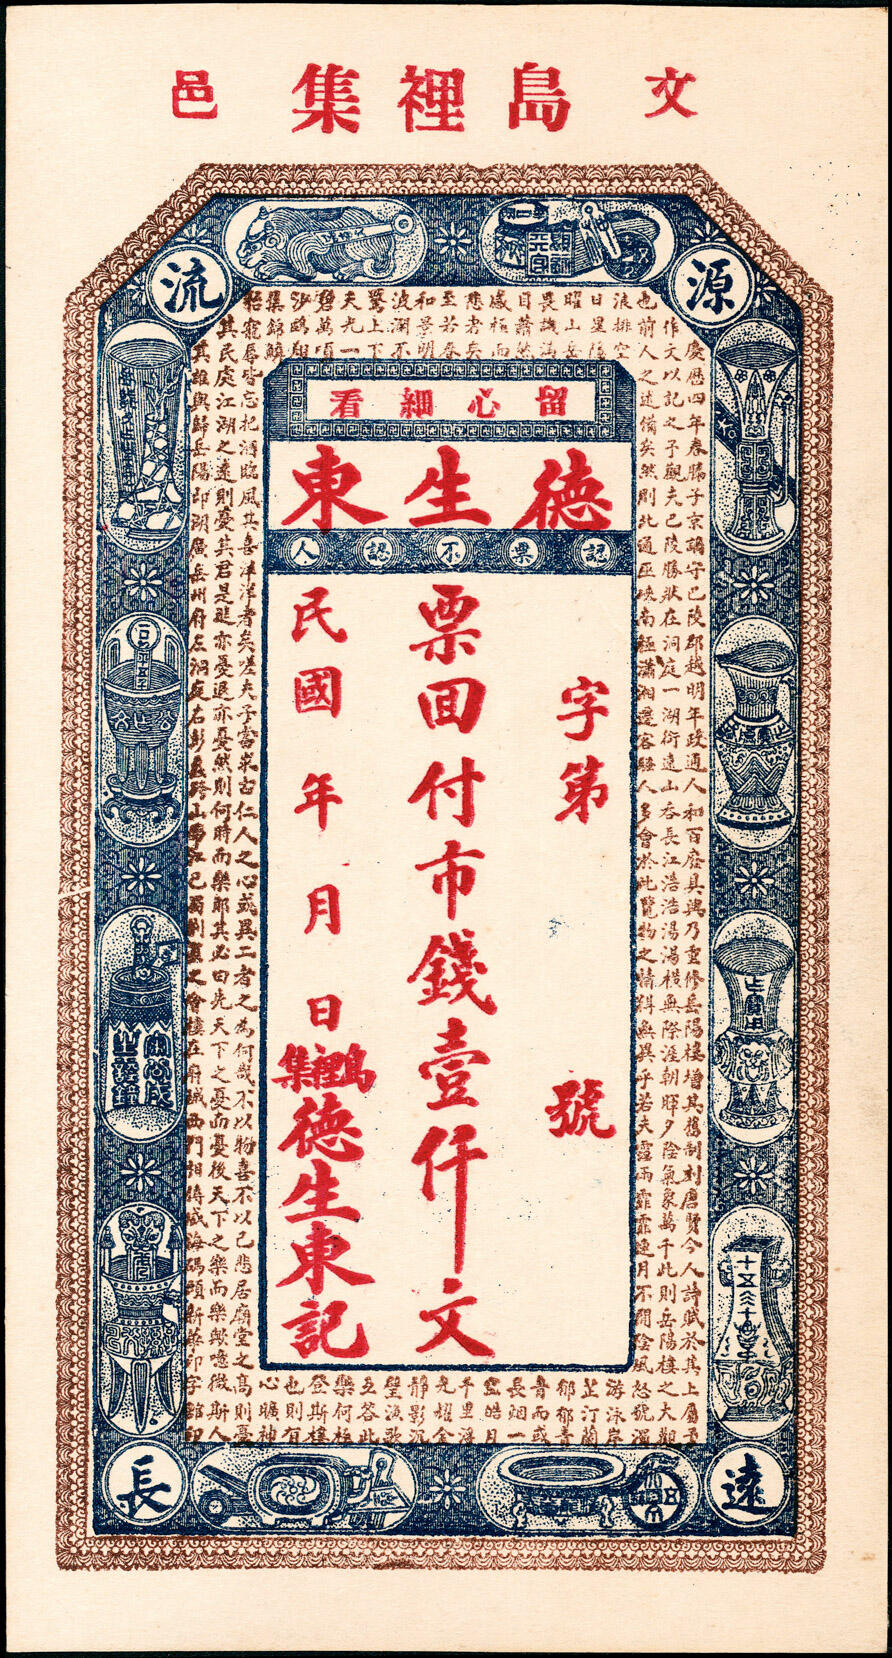 文島裡集邑
源遠流長
留心細看
德生東
認票不認人
字第 號
票囬付市錢壹仟文
民國 年 月 日
島裡集
德生東記
慶曆四年春滕子京謫守巴陵郡越明年政通人和百廢具興乃重修岳陽樓增其舊制刻唐賢今人詩賦於其上屬予
作文以記之予觀夫巴陵勝狀在洞庭一湖銜遠山吞長江浩浩湯湯橫無際涯朝暉夕陰氣象萬千此則岳陽樓之大觀
也前人之述備矣然則北通巫峽南極瀟湘遷客騷人多會於此覽物之情得無異乎若夫霪雨霏霏連月不開陰風怒號濁
浪排空
日星隱
曜山岳
畏譏滿
目蕭然
感極而
悲者矣
至若春
和景明
波瀾不
驚上下
天光一
碧萬頃
沙鷗翔
集錦鱗
游泳岸
芷汀蘭
郁郁青
青而或
長烟一
空皓月
千里浮
光耀金
靜影沉
璧漁歌
互答此
樂何極
登斯樓
也則有
心曠神
怡寵辱皆忘把酒臨風其喜洋洋者矣嗟夫予嘗求古仁人之心或異二者之為何哉不以物喜不以己悲居廟堂之高則憂
其民處江湖之遠則憂其君是進亦憂退亦憂然則何時而樂耶其必曰先天下之憂而憂後天下之樂而樂歟噫微斯人
其誰與歸岳陽即湖廣岳州府左洞庭右彭